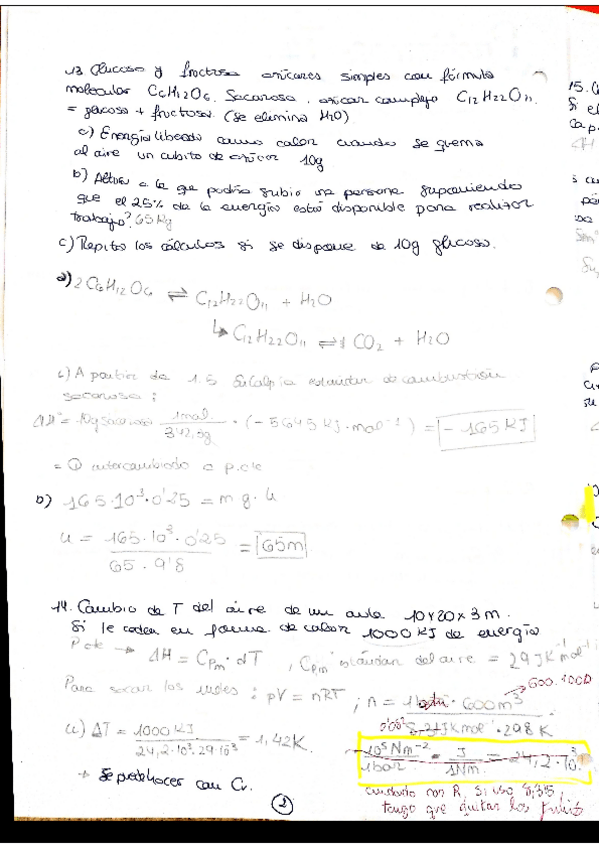 13. Glucosa y fructosa azúcares simples con fórmula
molecular C6H12O6. Sacarosa, azúcar complejo C12H22O11.
= glucosa + fructosa (se elimina H2O)
a) Energía liberada como calor cuando se quema
al aire un cubito de azúcar 10g
b) Altura a la que podría subir una persona suponiendo
que el 25% de la energía está disponible para realizar
trabajo? 65 Kg
c) Repita los cálculos si se dispone de 10g glucosa.
a) 2 C6H12O6 ⇌ C12H22O11 + H2O
↳ C12H22O11 ⇌ CO2 + H2O
A partir de 1.5 estándar de combustión
sacarosa:
ΔH = 10g sacarosa 1mol / 342,3g · (-5645 KJ·mol⁻¹) = -165 KJ
= Q intercambiado a p.cte
b) 165·10³·0'25 = m g · h
h = 165·10³·0'25 / 65·9'8 = 65m
14. Cambio de T del aire de un aula 10x20x3 m.
Si le ceden en forma de calor 1000 KJ de energía
P cte → ΔH = Cpm · dT, Cpm estándar del aire = 29 JK⁻¹mol⁻¹
Para sacar los moles: pV = nRT; n = 1 · 600m³ / · 298 K
600·1000
a) ΔT = 1000 KJ / 24,2·10³·29·10³ = 1,42K.
10⁵Nm⁻² / 1bar · J / 1Nm = 24,2·10³
→ Se puede hacer con Cv.
cuidado con R, si uso
tengo que quitar los
2
15.
Si el